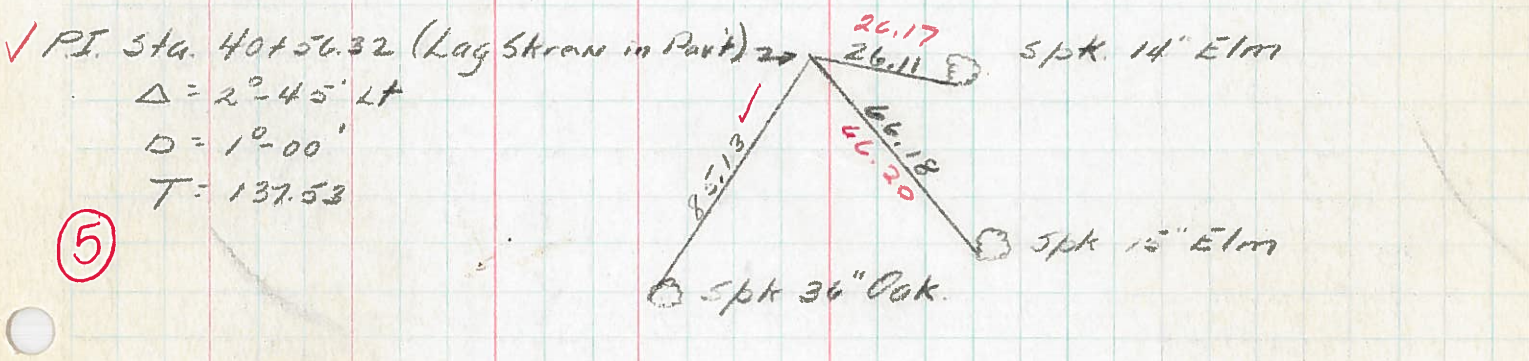 ✓ P.I. Sta. 40+56.32 (Lag Skrew in Pav't)
Δ = 2°-45' Lt
D = 1°-00'
T = 137.53
5
26.17
26.11
spk. 14" Elm
✓
85.13
66.18
66.20
Spk 15" Elm
Spk 36" Oak.